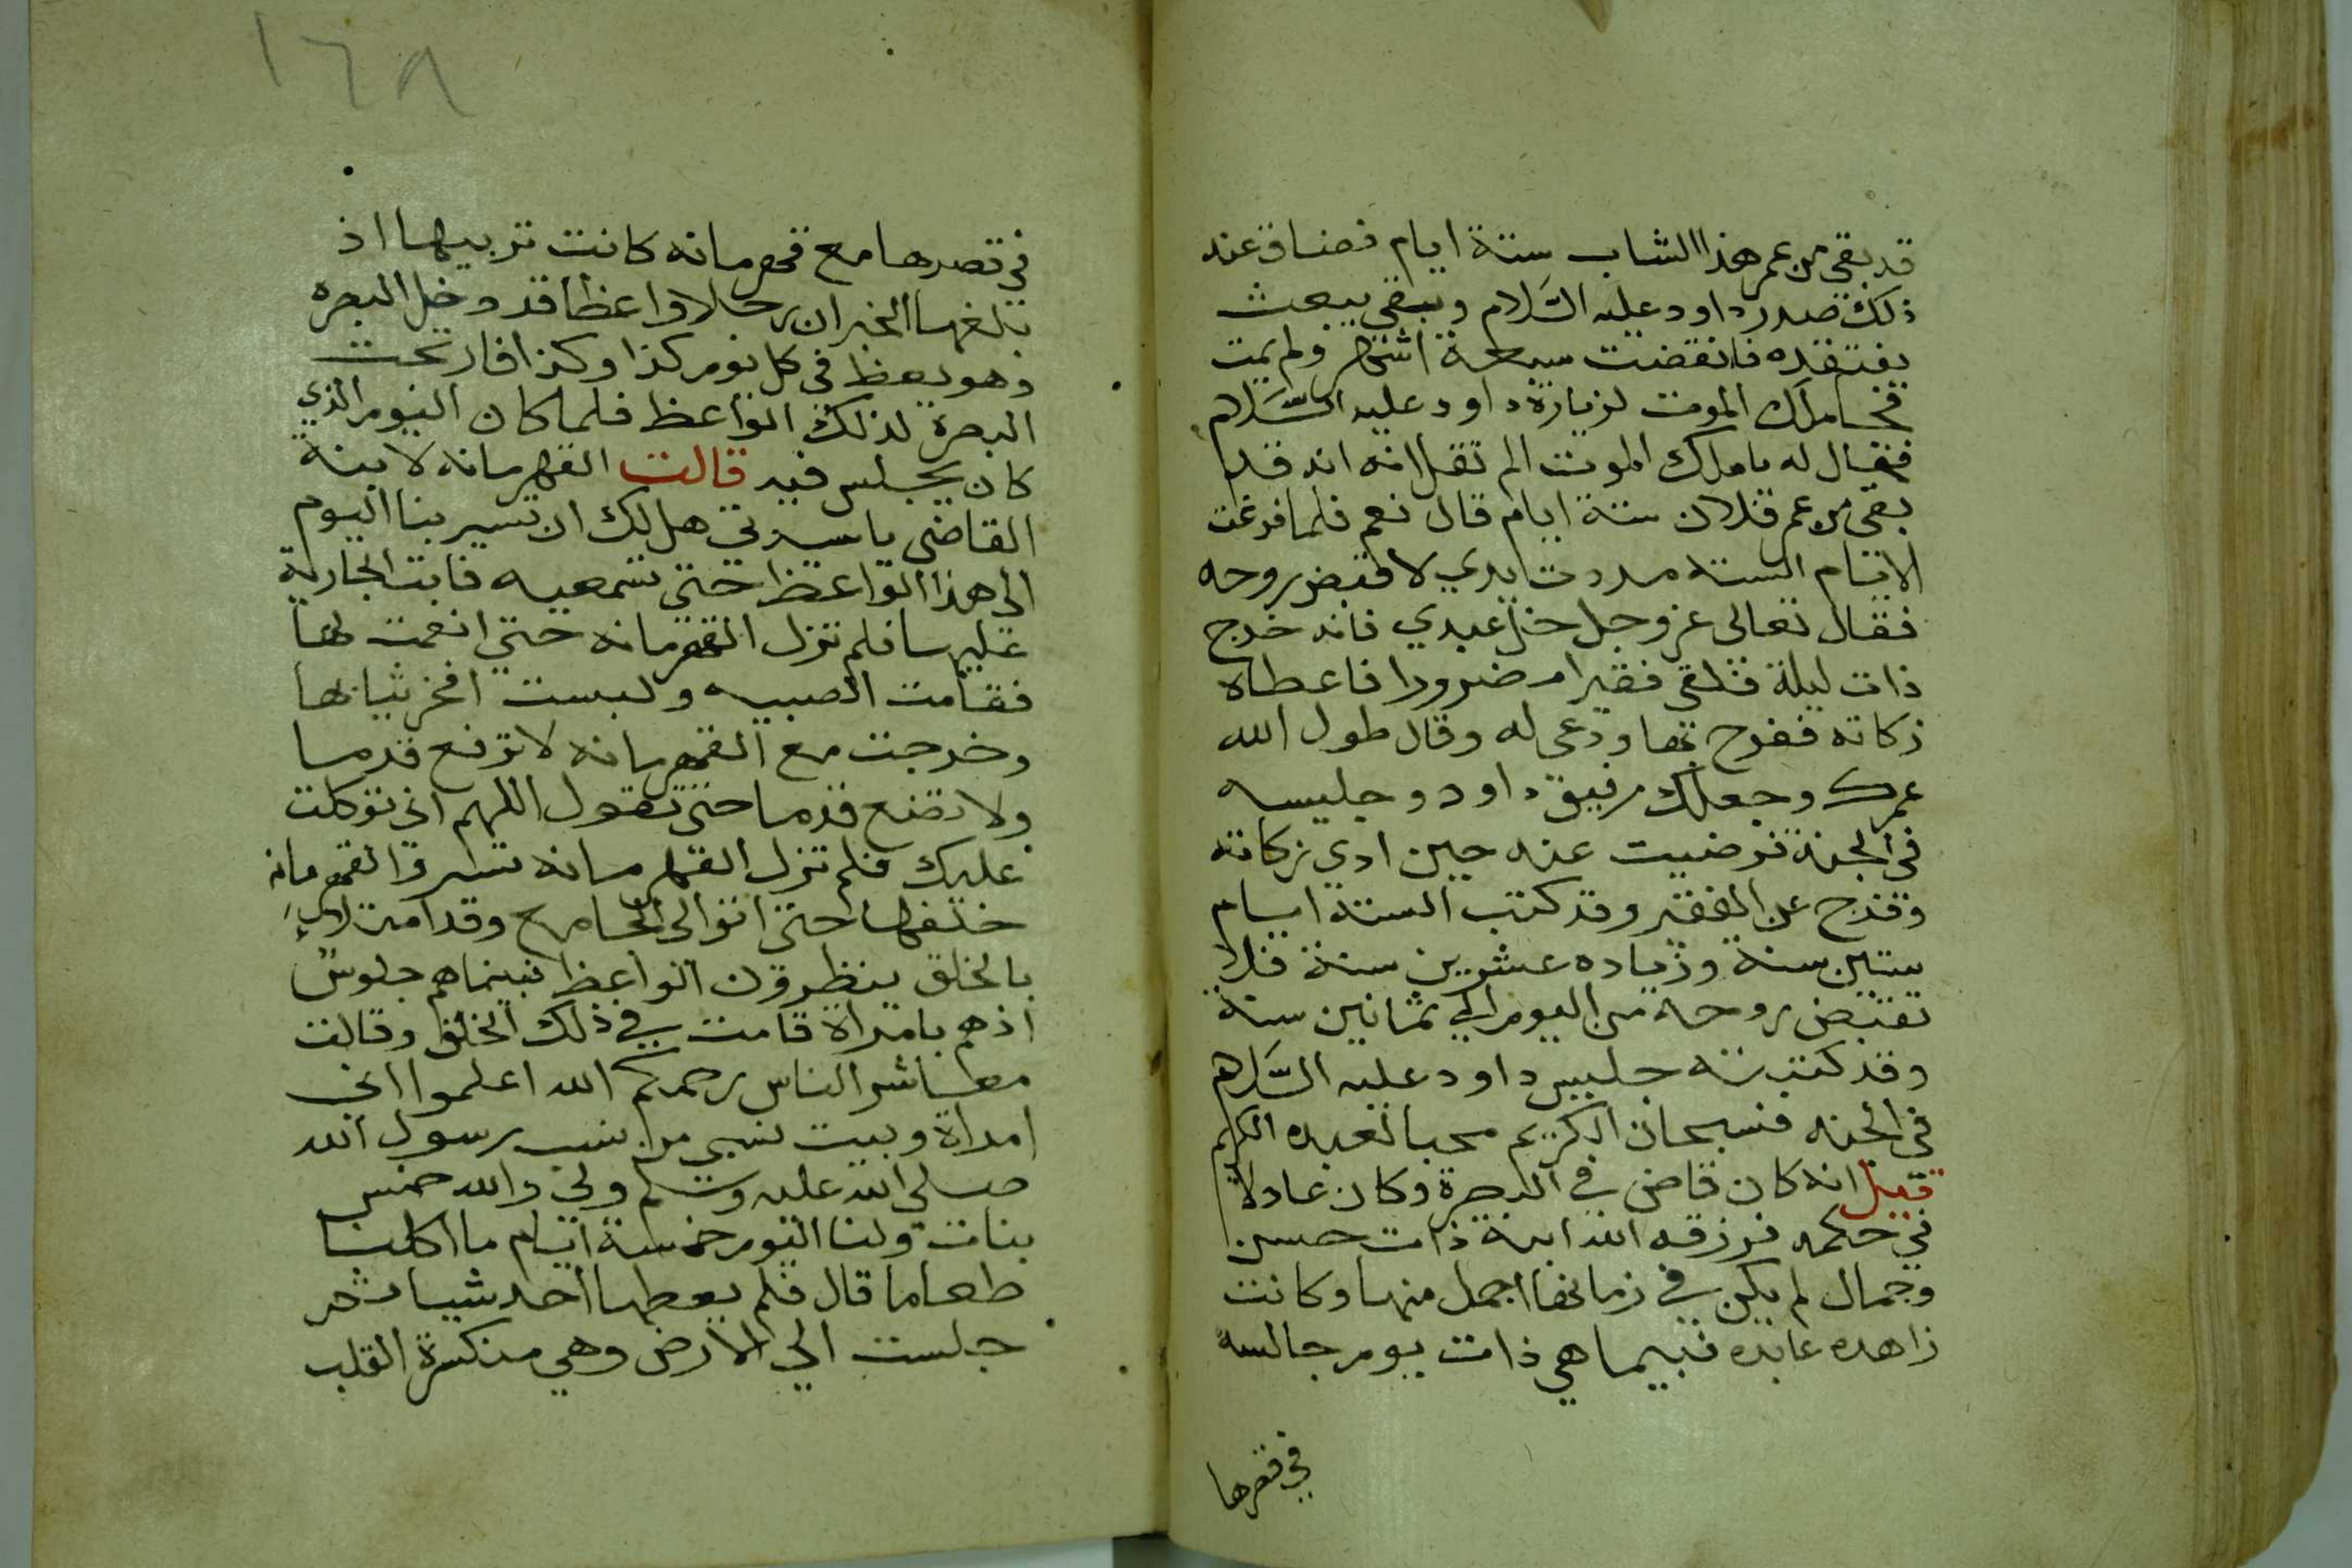 قد بقي من عمر هذا الشاب ستة ايام فضاق عند
ذلك صدر داود عليه السلام وبقي يبعث
يفتقده فانقضت سبعة اشهر ولم يمت
فجا ملك الموت لزيارة داود عليه السلام
فقال له يا ملك الموت الم تقل انه قد
بقي من عمر فلان ستة ايام قال نعم فلما فرغت
الايام الستة مددت يدي لاقبض روحه
فقال تعالى عز وجل خل عبدي فانه خرج
ذات ليلة فلقي فقيرا مضرورا فاعطاه
زكاته ففرح بها ودعى له وقال طول الله
عمرك وجعلك رفيق داود وجليسه
في الجنة فرضيت عنه حين ادي زكاته
وفرح عن الفقير وقد كتبت الستة ايام
ستين سنة وزياده عشرين سنة فلا
تقبض روحه من اليوم الي ثمانين سنة
وقد كتبته جليس داود عليه السلام
في الجنه فسبحان الكريم محبا لعبده الكريم
قيل انه كان قاضي في البصرة وكان عادلا
في حكمه فرزقه الله ابنة ذات حسن
وجمال لم يكن في زمانها اجمل منها وكانت
زاهده عابده فبينما هي ذات يوم جالسه
في قصرها
١٦٨
في قصرها مع قهرمانه كانت تربيها اذ
بلغها الخبر ان رجلا واعظا قد دخل البصره
وهو يعظ في كل يوم كذا وكذا فارتجت
البصرة لذلك الواعظ فلما كان اليوم الذي
كان يجلس فيه قالت القهرمانه لابنة
القاضي يا سيدتي هل لك ان تسير بنا اليوم
الى هذا الواعظ حتى تسمعيه فابت الجارية
عليها فلم تزل القهرمانه حتي انعمت لها
فقامت الصبيه ولبست افخر ثيابها
وخرجت مع القهرمانه لا ترفع قدما
ولا تضع قدما حتى تقول اللهم اني توكلت
عليك فلم تزل القهرمانه تسير والقهرمانه
خلفها حتى اتوا الى الجامع وقد امتلاء
بالخلق ينظرون الواعظ فبينما هم جلوس
اذ هم بامراة قامت في ذلك الخلق وقالت
معاشر الناس رحمكم الله اعلموا اني
امراة وبيت نسبي من نسب رسول الله
صلي الله عليه وسلم ولي والله خمس
بنات ولنا اليوم خمسة ايام ما اكلنا
طعاما قال فلم يعطها احد شيا ثم
جلست الي الارض وهي منكسرة القلب